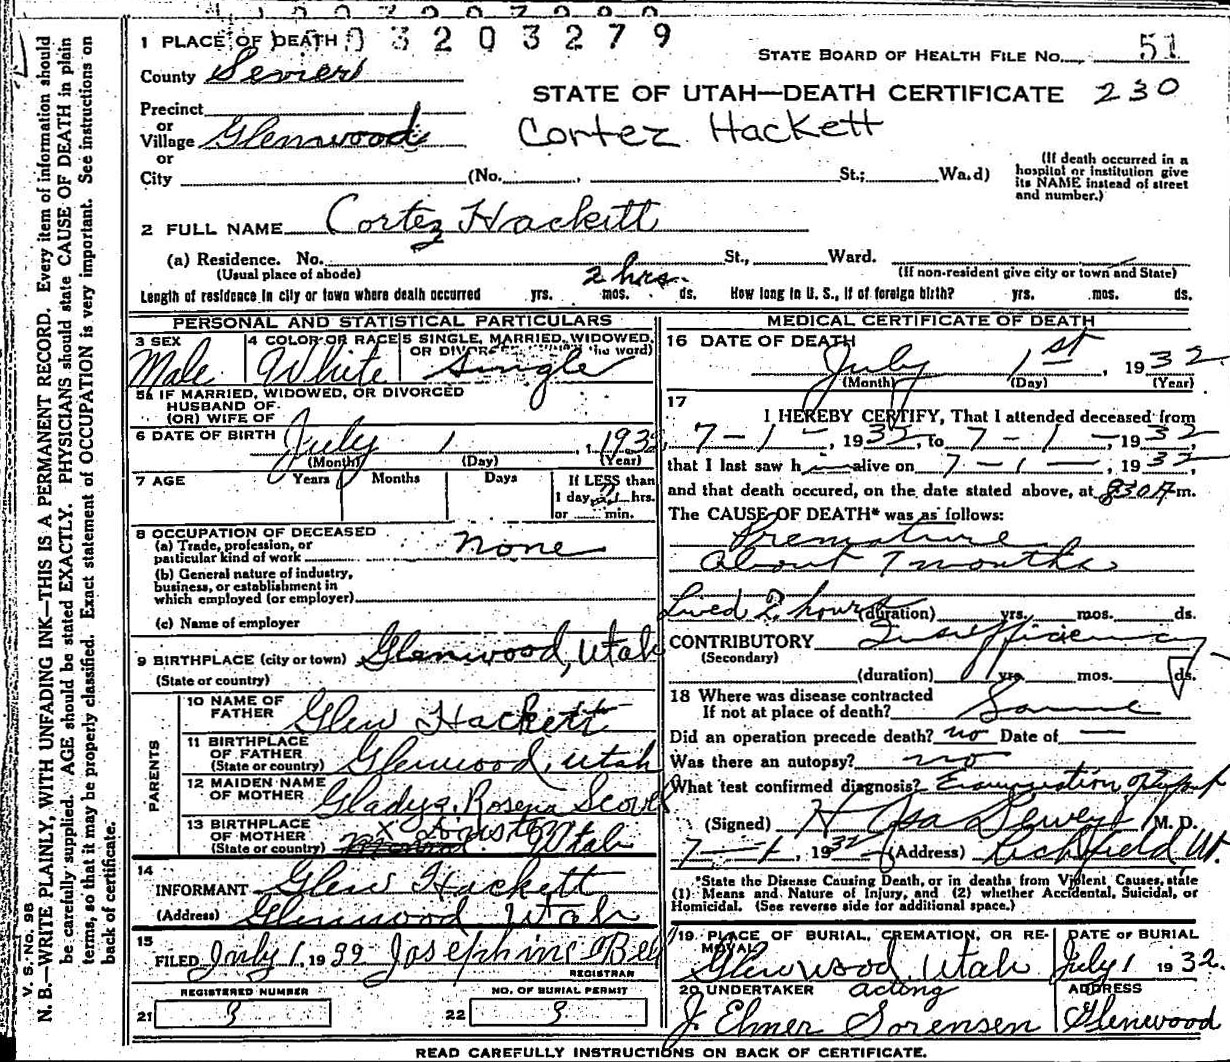 0 3 2 0 3 2 7 9
1 PLACE OF DEATH
STATE BOARD OF HEALTH FILE No. 51
County Sevier
STATE OF UTAH—DEATH CERTIFICATE 230
Precinct
or
Village Glenwood
Cortez Hackett
or
City (No. , St.; Ward)
(If death occurred in a
hospital or institution give
its NAME instead of street
and number.)
2 FULL NAME Cortez Hackett
(a) Residence. No. St., Ward.
(Usual place of abode) (If non-resident give city or town and State)
2 hrs.
Length of residence in city or town where death occurred yrs. mos. ds. How long in U. S., if of foreign birth? yrs. mos. ds.
PERSONAL AND STATISTICAL PARTICULARS
3 SEX Male
4 COLOR OR RACE White
5 SINGLE, MARRIED, WIDOWED,
OR DIVORCED (the word) Single
5a IF MARRIED, WIDOWED, OR DIVORCED
HUSBAND OF
(OR) WIFE OF
6 DATE OF BIRTH July 1, 1932
(Month) (Day) (Year)
7 AGE Years Months Days
If LESS than
1 day 2 hrs.
or min.
8 OCCUPATION OF DECEASED
(a) Trade, profession, or
particular kind of work none
(b) General nature of industry,
business, or establishment in
which employed (or employer)
(c) Name of employer
9 BIRTHPLACE (city or town) Glenwood, Utah
(State or country)
PARENTS
10 NAME OF
FATHER Glew Hackett
11 BIRTHPLACE
OF FATHER
(State or country) Glenwood, Utah
12 MAIDEN NAME
OF MOTHER Gladys Rosena
13 BIRTHPLACE
OF MOTHER
(State or country) Utah
14
INFORMANT Glew Hackett
(Address) Glenwood Utah
15
FILED July 1, 1932 Josephine Bell
REGISTRAR
REGISTERED NUMBER
21 3
NO. OF BURIAL PERMIT
22 3
MEDICAL CERTIFICATE OF DEATH
16 DATE OF DEATH
July 1st, 1932
(Month) (Day) (Year)
17
I HEREBY CERTIFY, That I attended deceased from
7-1-, 1932, to 7-1-1932
that I last saw him alive on 7-1-, 1932
and that death occured, on the date stated above, at 830A m.
The CAUSE OF DEATH* was as follows:
Premature
About 7 months
Lived 2 hours (duration) yrs. mos. ds.
CONTRIBUTORY Insufficiency
(Secondary)
(duration) yrs. mos. ds.
18 Where was disease contracted
If not at place of death? Same
Did an operation precede death? no Date of —
Was there an autopsy? no
What test confirmed diagnosis? Examination
(Signed) H Asa Dewey M. D.
7-1, 1932 (Address) Richfield Ut.
*State the Disease Causing Death, or in deaths from Violent Causes, state
(1) Means and Nature of Injury, and (2) whether Accidental, Suicidal, or
Homicidal. (See reverse side for additional space.)
19 PLACE OF BURIAL, CREMATION, OR RE-
MOVAL
Glenwood, Utah
DATE OF BURIAL
July 1 1932.
20 UNDERTAKER acting
J. Elmer Sorensen
ADDRESS
Glenwood
READ CAREFULLY INSTRUCTIONS ON BACK OF CERTIFICATE.
V. S.—No. 98
N. B.—WRITE PLAINLY, WITH UNFADING INK—THIS IS A PERMANENT RECORD. Every item of information should
be carefully supplied. AGE should be stated EXACTLY. PHYSICIANS should state CAUSE OF DEATH in plain
terms, so that it may be properly classified. Exact statement of OCCUPATION is very important. See instructions on
back of certificate.